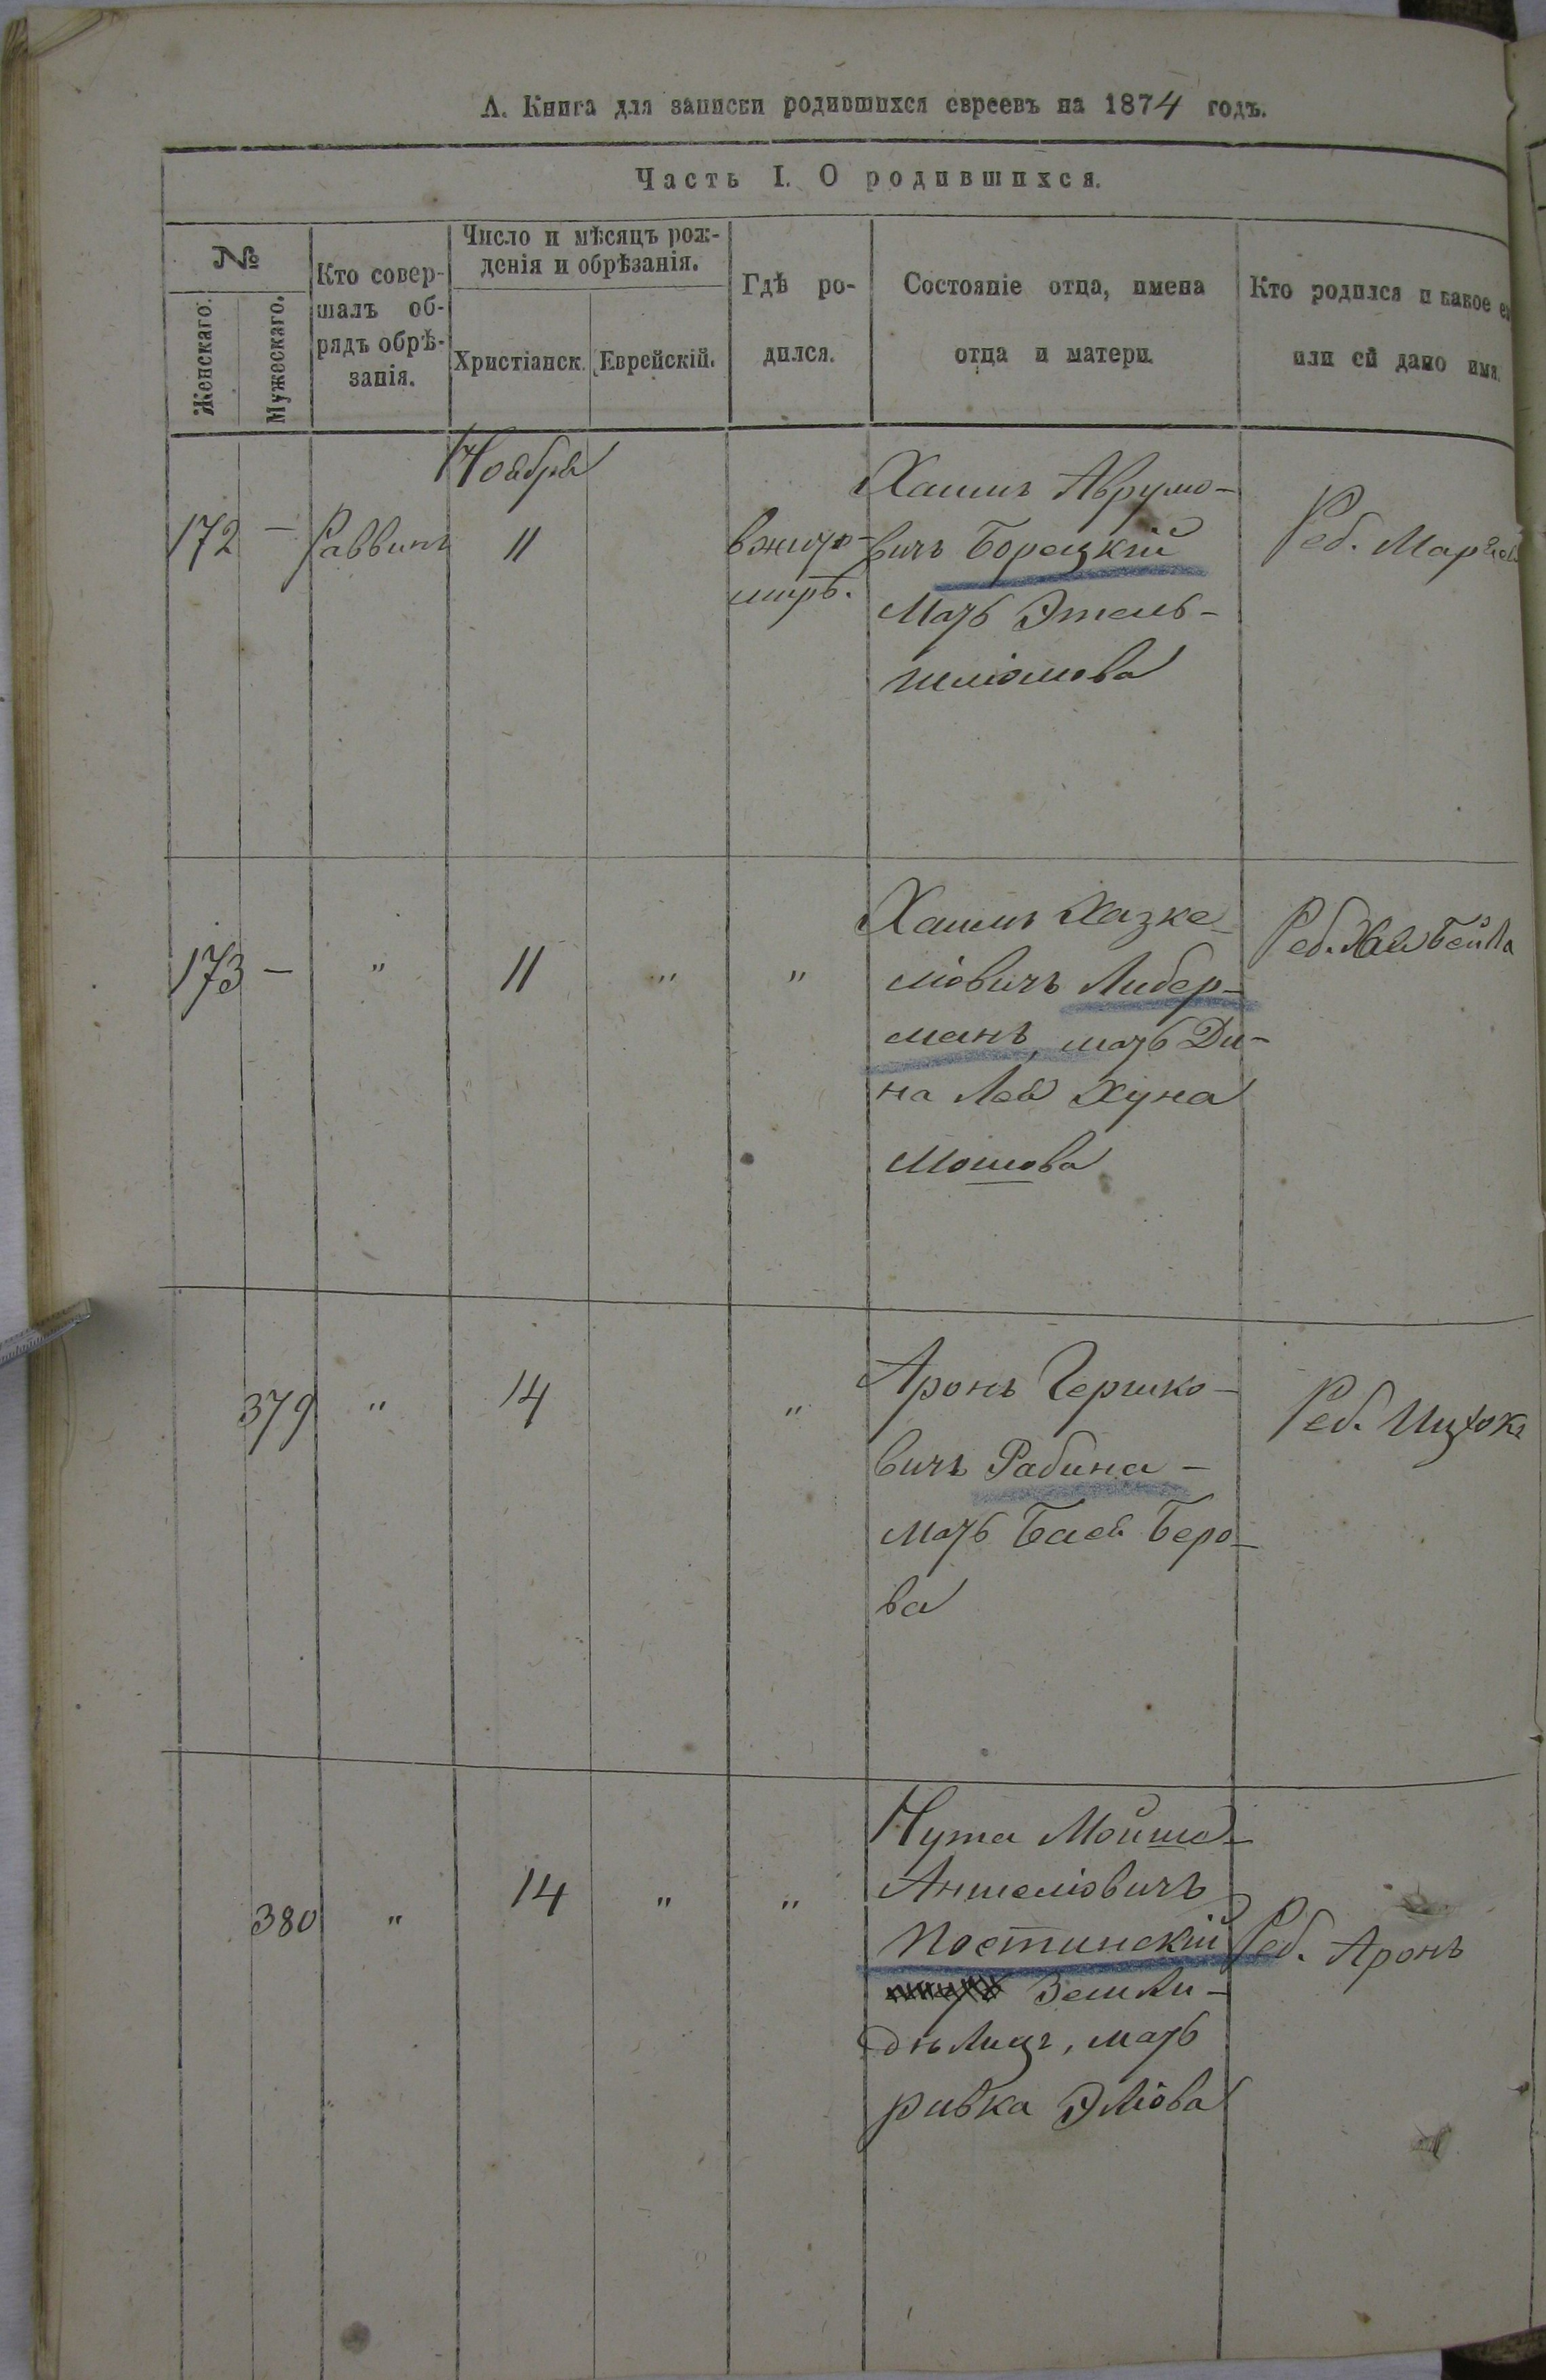 А. Книга для записки родившихся евреевъ на 1874 годъ.
Часть I. О родившихся.
№
Женскаго.
Мужескаго.
Кто совер-
шалъ об-
рядъ обрѣ-
занія.
Число и мѣсяцъ рож-
денія и обрѣзанія.
Христіанск.
Еврейскій.
Гдѣ ро-
дился.
Состояніе отца, имена
отца и матери.
Кто родился и какое ем
или ей дано имя.
Ноября
172 — Раввинъ 11
вжито-
мирѣ.
Хаимъ Аврумо-
вичъ Борецкій
Мать Этель-
шліомова
Реб.
173 — " 11 " "
Хаимъ Хазке-
ліовичъ Либер-
манъ, мать Ди-
на Лея Хуна
Мошова
Реб. Хая Бейла
379 " 14 "
Аронъ Гершко-
вичъ Рабина -
мать Бася Беро-
ва
Реб. Ицхокъ
380 " 14 " "
Нута Мойше-
Аншеліовичъ
Постинскій
Земли-
дѣлицъ, мать
ривка Эліова
Реб. Аронъ